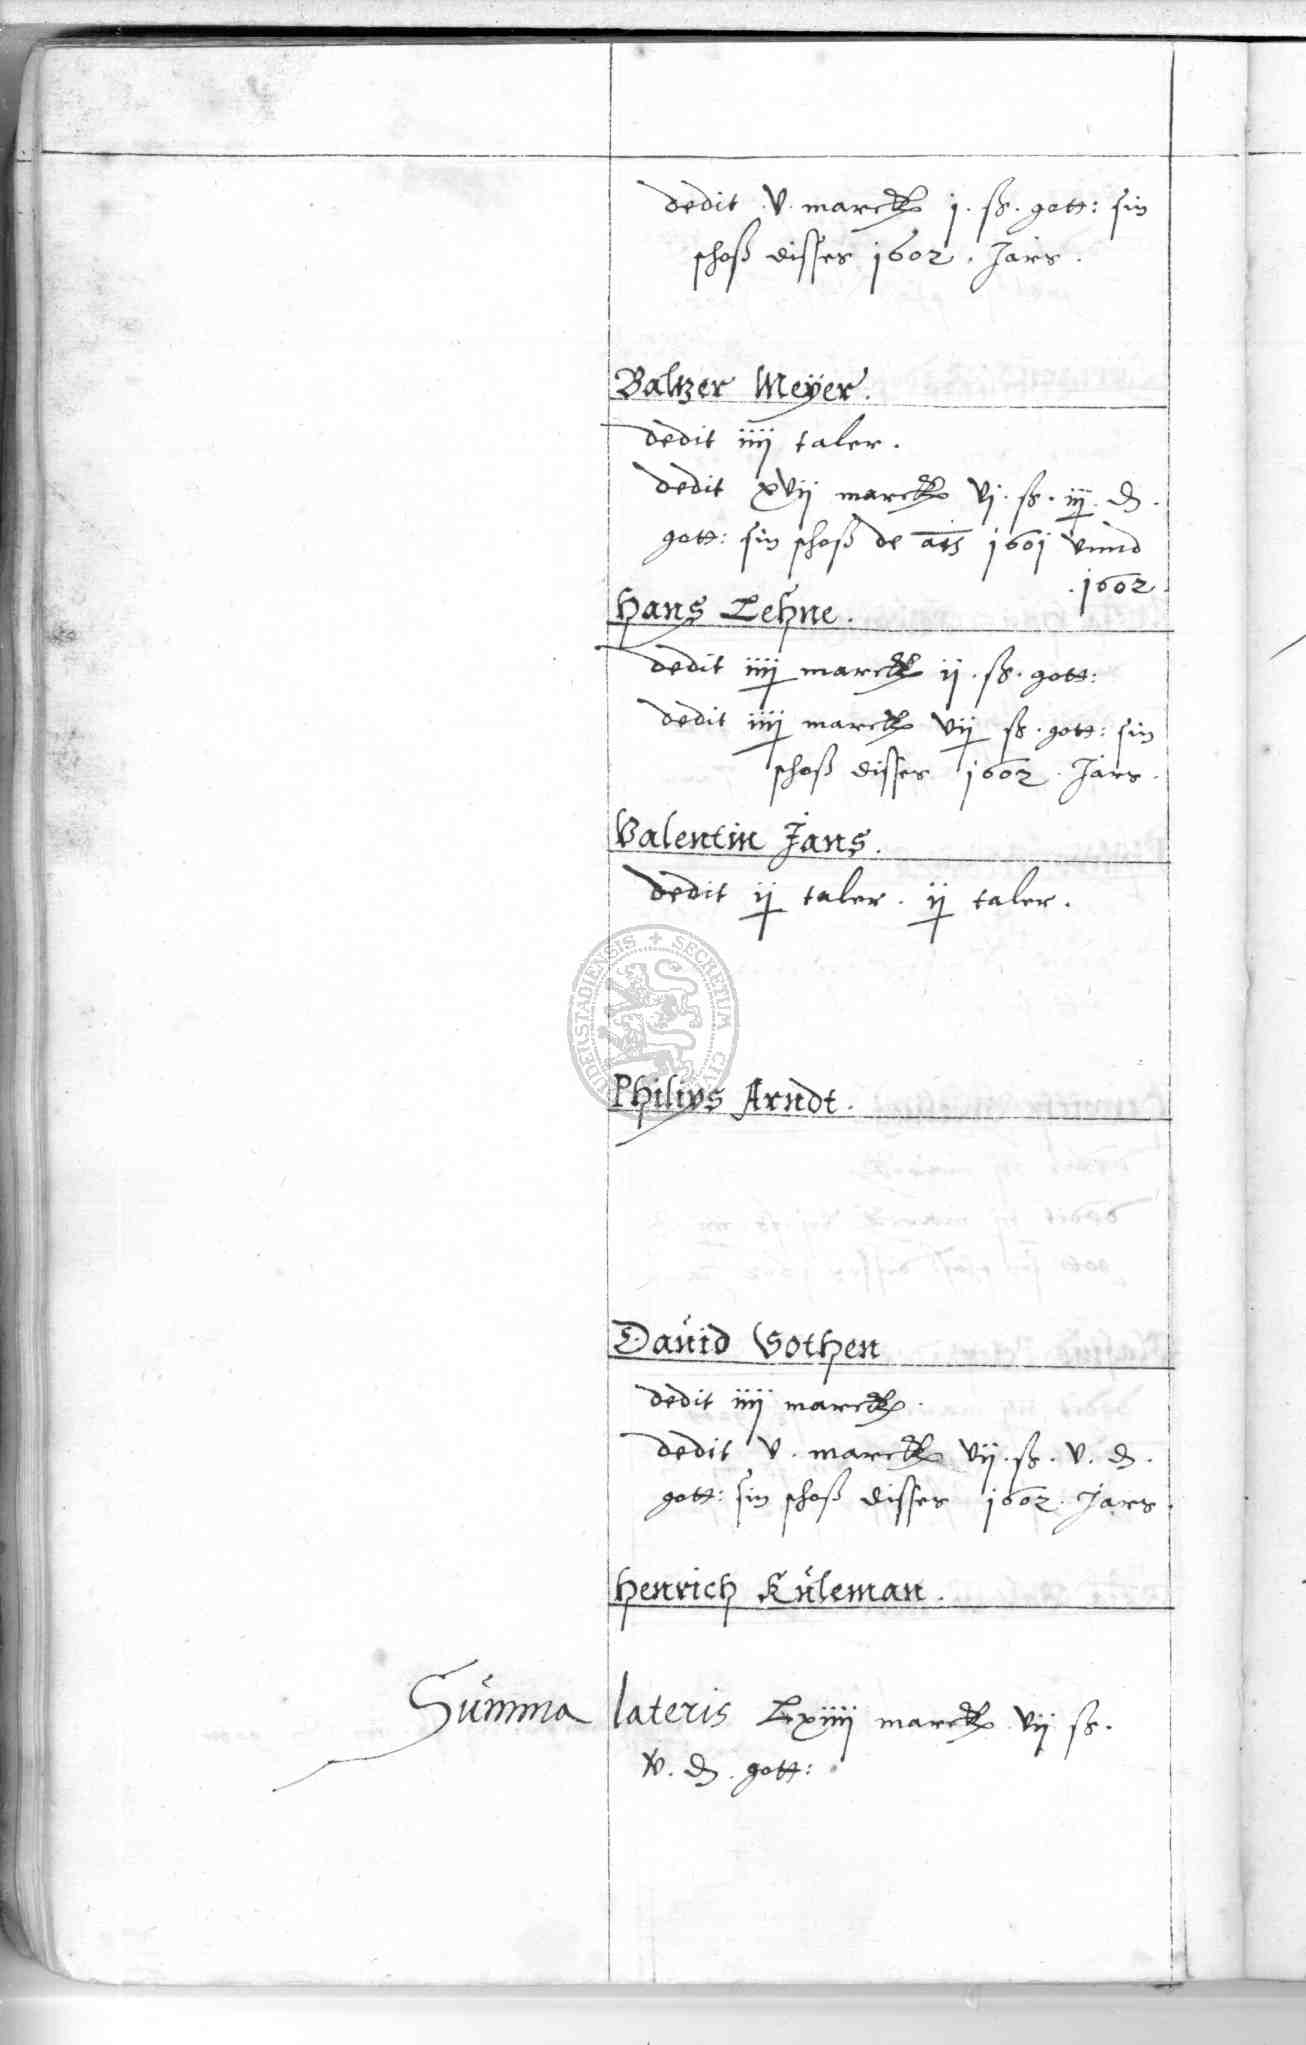 dedit .V. marck j. ß. gott: sin
schoß disses 1602. Jars.
Baltzer Meÿer.
dedit iiij taler.
dedit xvij marck vj. ß. iij. d.
gott: sin schoß de a͞is 1601 vnnd
.1602.
Hans Lehne.
dedit iiij marck ij. ß. gott:
dedit iiij marck vij ß. gott: sin
schoß disses 1602. Jars.
Valentin Jans.
dedit ij taler. ij taler.
SECRETUM
Philips Arndt.
Dauid Vothen
dedit iiij marck.
dedit V. marck vij. ß. V. d.
gott: sin schoß disses 1602. Jars.
Henrich Kuleman.
Summa lateris Lxiiij marck vij ß.
d. gott: